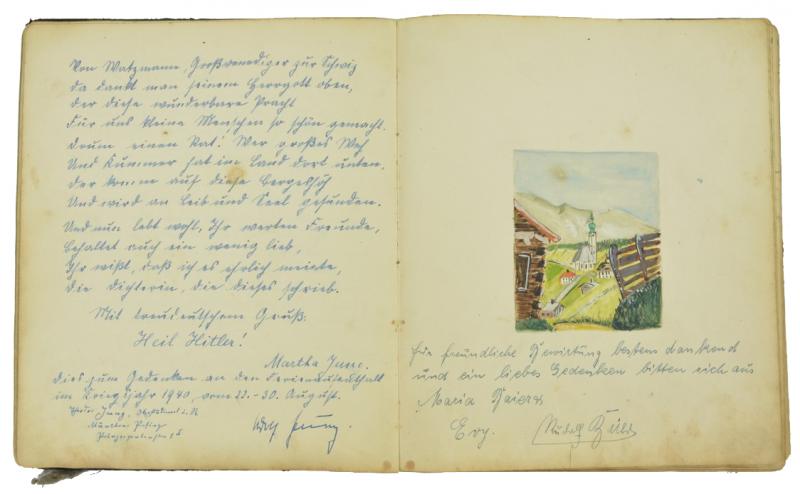 Von Watzmann, Großvenediger zur Schwiz
Da dankt man seinem Herrgott oben,
Der diese wunderbare Pracht
Für uns kleine Menschen so schön gemacht.
Drum einen Rat! Wer großes Weh
Und Kummer hat im Land dort unten,
Der komm auf diese Bergeshöh
Und wird an Leib und Seel gesunden.
Und nun lebt wohl, Ihr werten Freunde,
Behaltet auch ein wenig lieb,
Ihr wißt, daß ich es ehrlich meinte,
Die Dichterin, die dieses schrieb.
Mit treudeutschem Gruß:
Heil Hitler!
Martha Jung.
Dies zum Gedenken an den Ferienaufenthalt
im Kriegsjahr 1940, vom 23.-30. August.
Jung,
München Pasing
Adolf Jung.
Für freundliche Bewirtung bestens dankend
und ein liebes Gedenken bitten sich aus
Maria
Rudolf